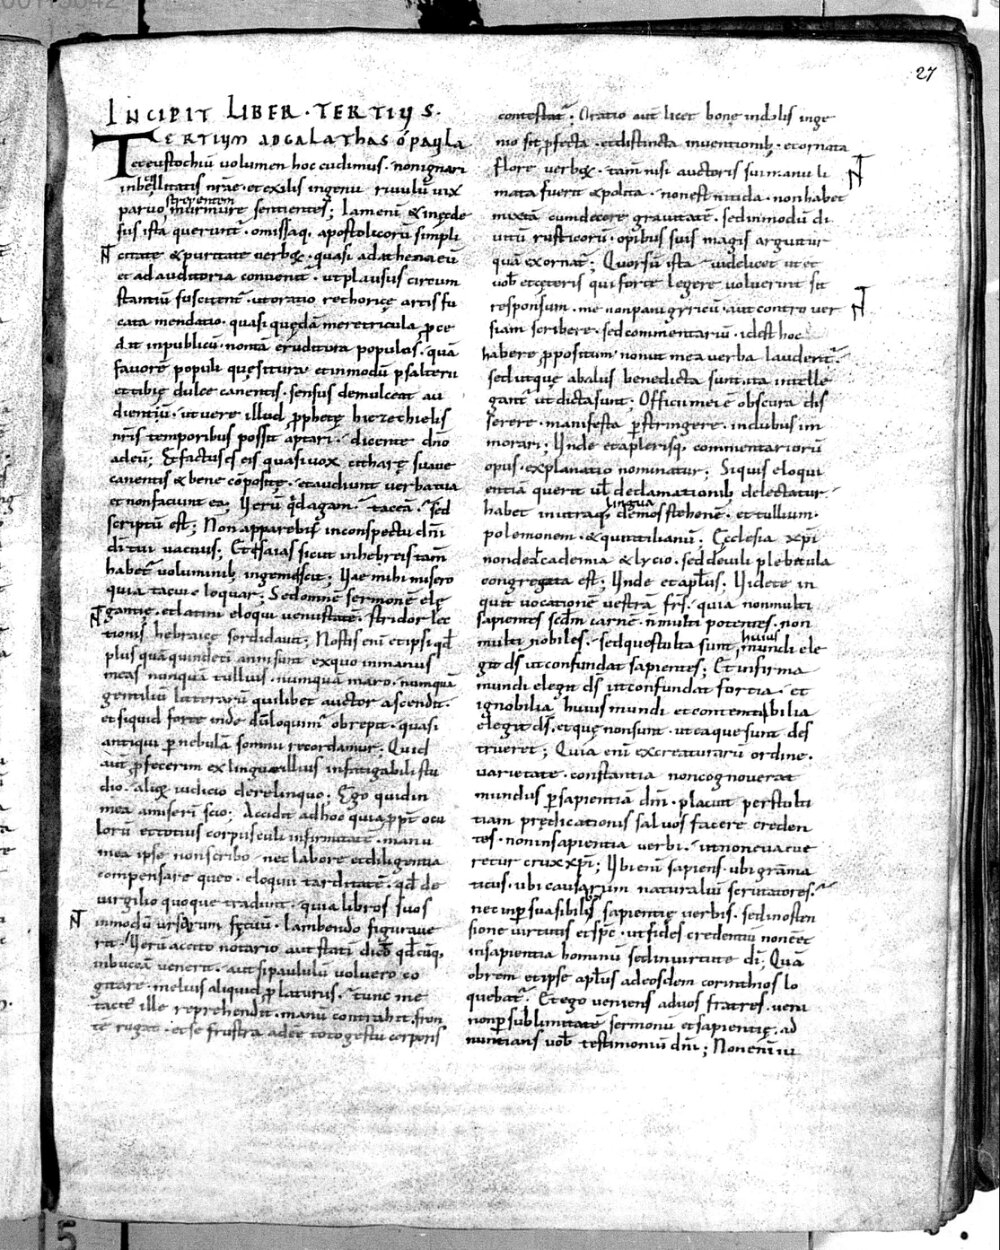 27
INCIPIT LIBER · TERTIUS ·
TERTIUM AD GALATHAS ó paula
et eustochiū volumen hoc cudimus · non ignari
inbęllitatis nrae · et exilis ingenii riuulū uix
strepentem
paruo murmure sentientes ; Iam enī & in ęccle
siis ista querunt̄ · omissaq; apostolicorū simpli
citate & puritate uerboꝝ · quasi ad athenaeū
et ad auditoria conuenit̄ · ut plausus circum
stantiū suscitent̄ · ut oratio rethoricę artis fu
cata mendatio · quasi quędā meretricula ꝓce
dit in publicū · non tā eruditura populos · quā
fauorē populi quęsitura · et in modū psalterii
et tibię dulce canentis · sensus demulceat au
dientiū · ut uere illud ꝓphetę hiezechielis
nr̄is temporibus possit aptari · dicente dn̄o
ad eū ; Et factus es eis quasi uox citharę suaue
canentis & bene cōpositę · et audiunt uerba tua
et non faciunt ea ; Uerū qd̄ agam · taceā · sed
scriptū est ; Non apparebis in conspectu dn̄i
dī tui uacuus ; Et esaias sicut in hebreis tam̄
habet̄ uoluminib; ingemescit ; Uae mihi misero
quia tacui · loquar ; Sed omnē sermonē ele
gantię · et latini eloquii uenustatē · stridor lec
tionis hebraicę sordidauit ; Nostis enī et ipsi qd̄
plus quā quindeci anni sunt ex quo in manus
meas nunquā tullius · nunquā maro · nunquā
gentiliū litterarū quilibet auctor ascendit ·
et si quid forte inde dū loquimur̄ obrepit · quasi
antiqui ꝑ nebulā somnii recordamur ; Quid
aut̄ ꝓfecerim ex linguę illius infatigabili stu
dio · alioꝝ iudicio derelinquo ; Ego quid in
mea amiserī scio ; Accidit ad hoc quia ꝓpt̄ ocu
lorū et totius corpusculi infirmitatē · manu
mea ipse non scribo · nec labore et diligentia
compensare queo · eloquii tarditatē · qd̄ de
uirgilio quoque tradunt · quia libros suos
in modū ursorum fętuū · lambendo figuraue
rit · Uerū accito notario aut statī dictō qd̄cūq;
in buccā uenerit · aut si paululū uoluero co
gitare · melius aliquid ꝓlaturus · tunc me
tacit̄ ille reprehendit · manū contrahit · fron
tē rugat · et se frustra adeē toto gestu corporis
contestat̄ ; Oratio aut̄ licet bonę indolis inge
nio sit ꝑfecta · et distincta inuentionib; · et ornata
flore uerboꝝ · tam̄ nisi auctoris sui manu li
mata fuerit & polita · non est nitida · non habet
mixtā cum decore grauitatē · sed in modū di
uitū rusticorū · opibus suis magis arguitur
quā exornat̄ ; Quorsū ista · uidelicet ut et
uob̄ et ceteris qui forte legere uoluerint sit
responsum · me non panigyricū · aut contro uer
siam scribere · sed commentariū · id est hoc
habere ꝓpositum · non ut mea uerba laudent̄ ·
sed ut quę ab alus bene dicta sunt · ita intelle
gant̄ ut dicta sunt ; Officii mei ē obscura dis
serere · manifesta ꝑstringere · in dubiis im
morari ; Unde et a plerisq; commentariorū
opus · explanatio nominatur ; Siquis eloqui
entiā querit uł declamationib; delectatur ·
lingua
habet in utraq; demosthenē · et tullium ·
polemonem · & quintilianū ; Ecclesia xp̄i
non de academia & lycio · sed de uili plebecula
congregata est ; Unde et apłus · Uidete in
quit uocationē uestrā frs̄ · quia non multi
sapientes sedm̄ carnē · ñ multi potentes · non
huius
multi nobiles · sed quę stulta sunt mundi ele
git ds̄ ut confundat sapientes ; Et infirma
mundi elegit ds̄ ut confundat fortia · et
ignobilia huius mundi et contemtibilia
elegit ds̄ · et quę non sunt · ut ea quę sunt des
trueret ; Quia enī ex creaturarū ordine ·
uarietate · constantia non cognouerat
mundus ꝑ sapientiā dm̄ · placuit per stulti
tiam prędicationis saluos facere creden
tes · non in sapientia uerbi · ut non euacue
retur crux xp̄i ; Ubi enī sapiens · ubi gramā
ticus · ubi causarum naturaliū scrutatores ·
nec in ꝑsuasibilib; sapientię uerbis · sed in osten
sione uirtutis et sp̄c · ut fides credentiū non eēt
in sapientia hominū sed in uirtute dī ; Quā
obrem et ipse apłus ad eosdem corinthios lo
quebat̄ · Et ego ueniens ad uos fratres · ueni
non ꝑ sublimitatē sermonū et sapientię · ad
nuntians uob̄ testimoniū dn̄i ; Non enī iu